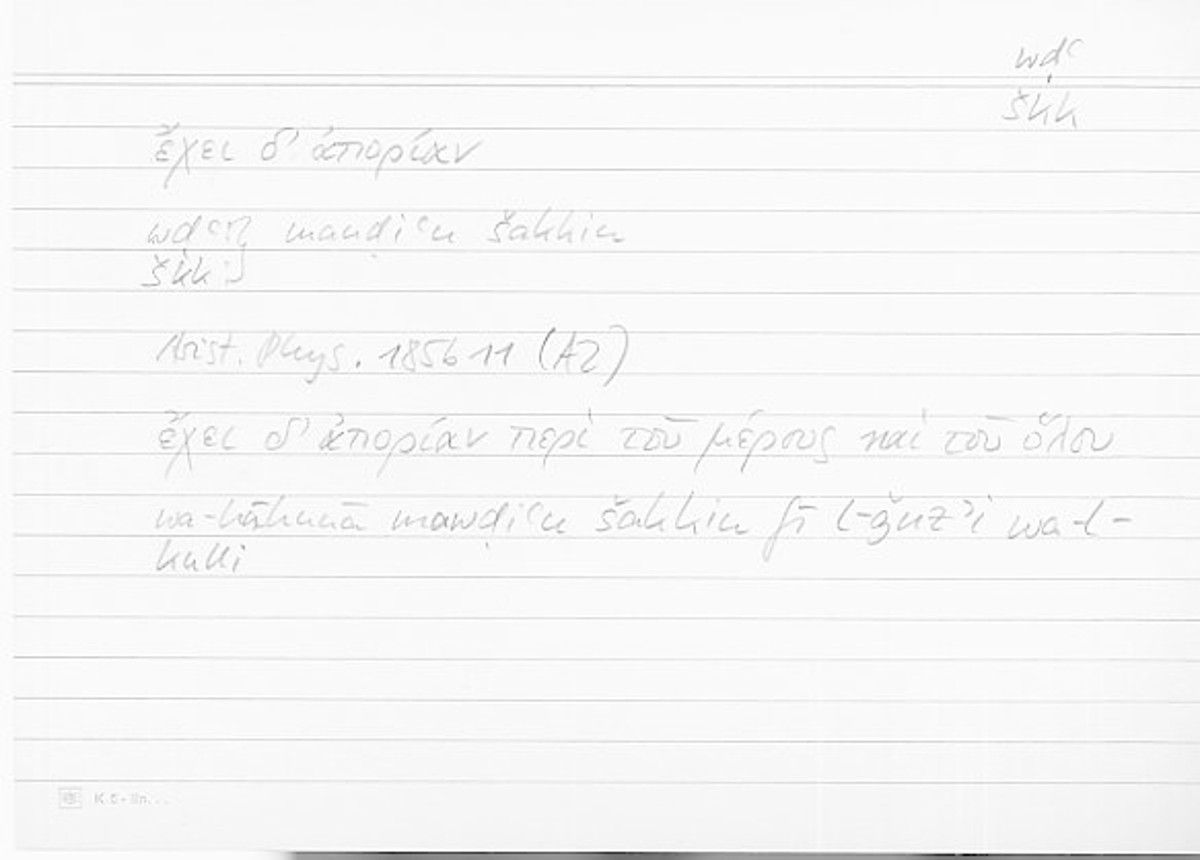 wḍʿ
škk
ἔχει δ' ἀπορίαν
wḍʿ mawḍiʿu šakkin
škk
Arist. Phys. 185b11 (A2)
ἔχει δ' ἀπορίαν περὶ τοῦ μέρους καὶ τοῦ ὅλου
wa-hāhunā mawḍiʿu šakkin fī l-ǧuzʾi wa-l-
kulli